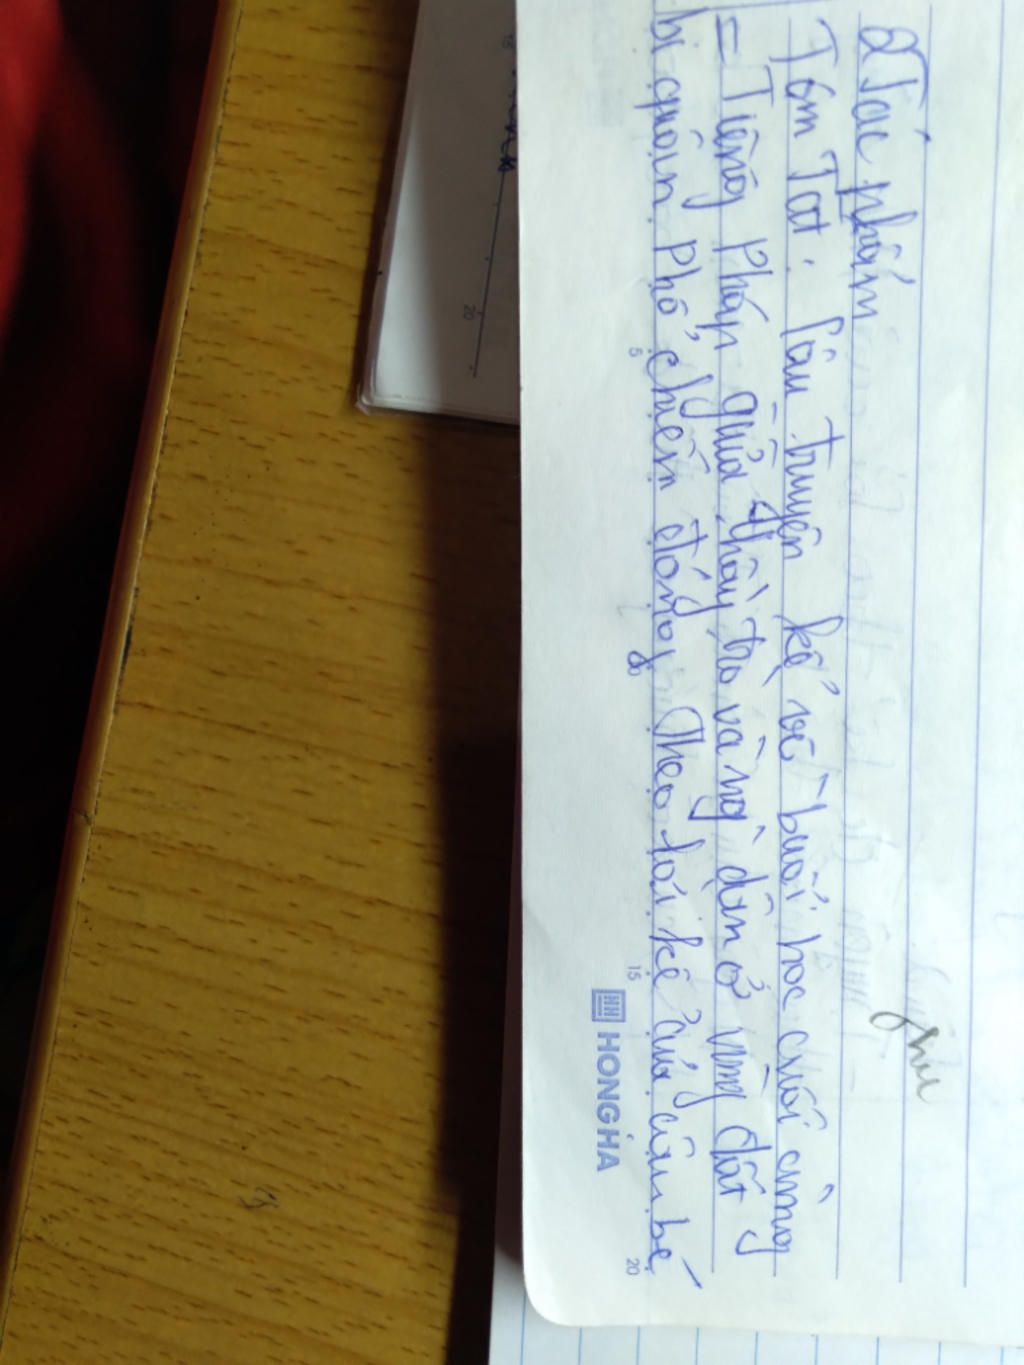 2 Tác phẩm
Tóm Tắt. Câu truyện kể về buổi học cuối cùng
= Tiếng Pháp của thầy trò và ng dân ở vùng đất
bị quân Phổ chiếm đóng Theo lời kể của cậu bé
5
15
20
HONG HA
20